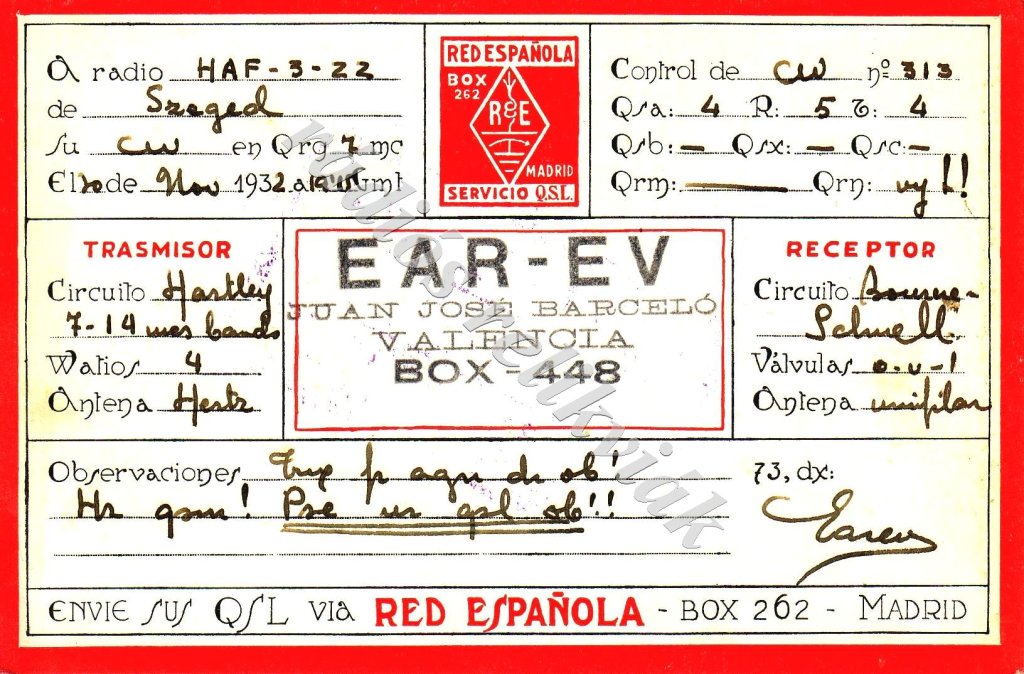 A radio HAF-3-22
de Szeged
Su CW en Qrg 7 mc
El de Nov 1932 a Gmt
RED ESPAÑOLA
BOX
262
R E
MADRID
SERVICIO Q.S.L.
Control de CW nº 313
Qsa: 4 R: 5 T: 4
Qsb: — Qsx: — Qsc: —
Qrm: — Qrn: vy !!
TRASMISOR
Circuito Hartley
7-14 mcs bands
Watios 4
Antena Hertz
EAR-EV
JUAN JOSÉ BARCELÓ
VALENCIA
BOX-448
RECEPTOR
Circuito Bourne-
Schnell.
Válvulas o-v-1
Antena unifilar
Observaciones Tnx qso ob!
Hr qsl! Pse ur qsl ob!!
73, dx:
Earev
ENVIE SUS QSL VIA RED ESPAÑOLA - BOX 262 - MADRID
rádiós relikviák